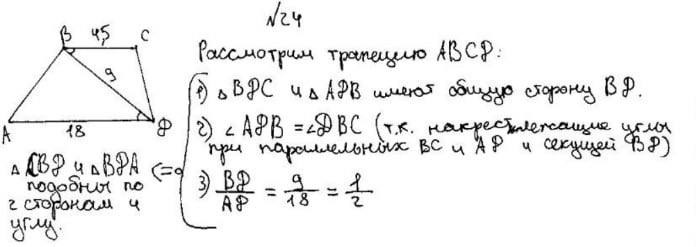 №24
B 4,5 C
9
A 18 D
Рассмотрим трапецию ABCD:
1) △BDC и △ADB имеют общую сторону BD.
2) ∠ADB = ∠DBC (т.к. накрест лежащие углы
при параллельных BC и AD и секущей BD)
3) BD/AD = 9/18 = 1/2
△CBD и △BDA <=
подобны по
2 сторонам и
углу.